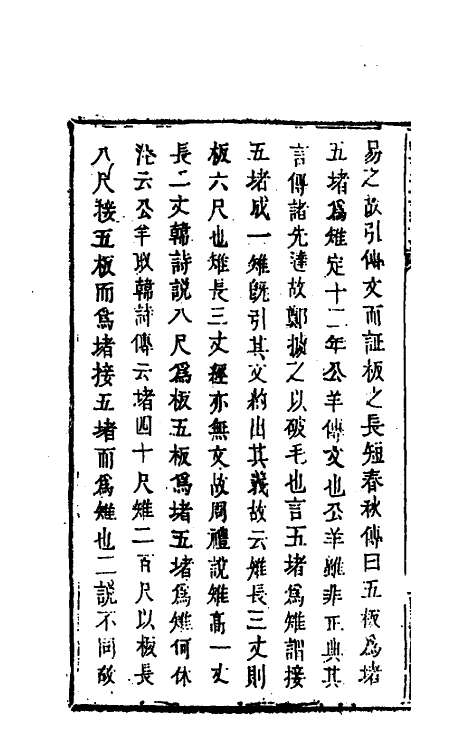 易之故引傳文而証板之長短春秋傳曰五板為堵
五堵為雉定十二年公羊傳文也公羊雖非正典其
言傳諸先達故鄭據之以破毛也言五堵為雉謂接
五堵成一雉既引其文約出其義故云雉長三丈則
板六尺也雉長三丈經亦無文故周禮說雉高一丈
長二丈韓詩說八尺為板五板為堵五堵為雉何休
註云公羊取韓詩傳云堵四十尺雉二百尺以板長
八尺接五板而為堵接五堵而為雉也二說不同故